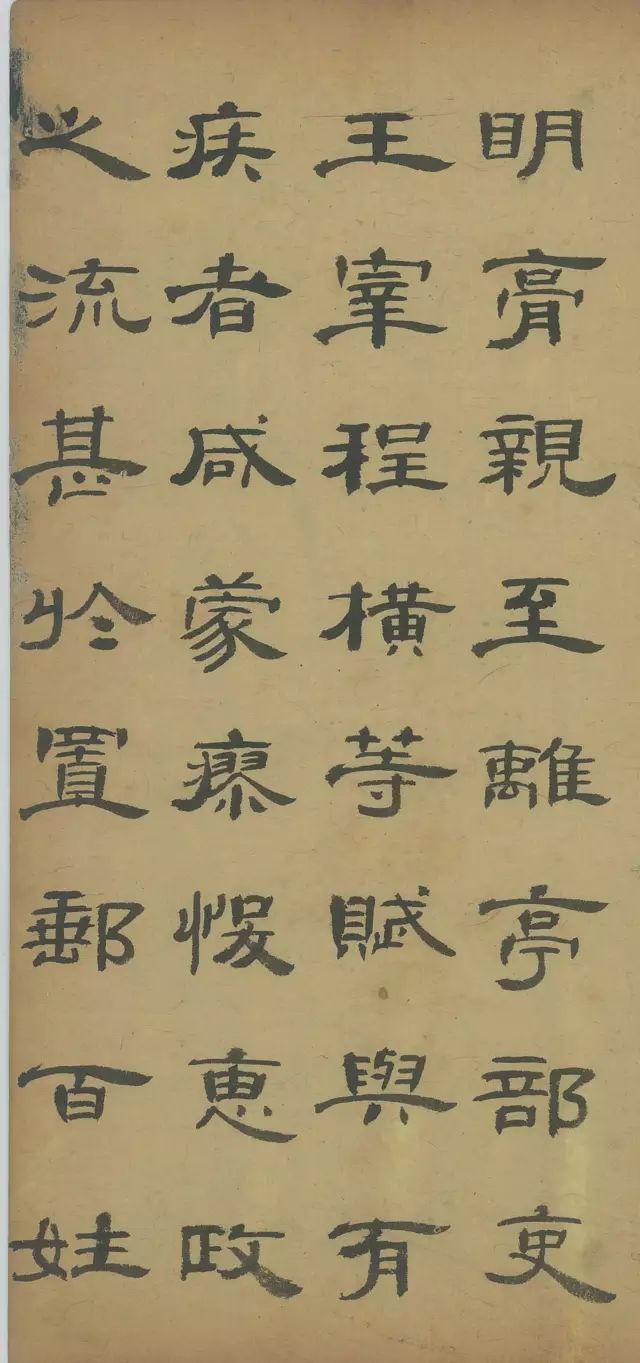 明膏親至離亭部吏
王宰程橫等賦與有
疾者咸蒙瘳悛惠政
之流甚於置郵百姓